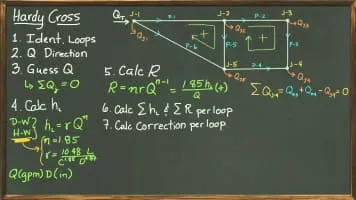 Hardy Cross
1. Ident. Loops
2. Q Direction
3. Guess Q
↳ ΣQⱼ = 0
4. Calc hL
D-W
H-W
hL = r Qⁿ
n = 1.85
r = 10.48 L / C^1.85 D^4.87
Q(gpm) D(in)
5. Calc R
R = nrQⁿ⁻¹ = 1.85hL/Q (+)
6. Calc Σ hL & Σ R per loop
7. Calc Correction per loop
QT
J-1
P-1
J-2
P-2
J-3
QJ1
QJ2
QJ3
P-6
P-5
P-3
J-5
P-4
J-4
QJ5
QJ4